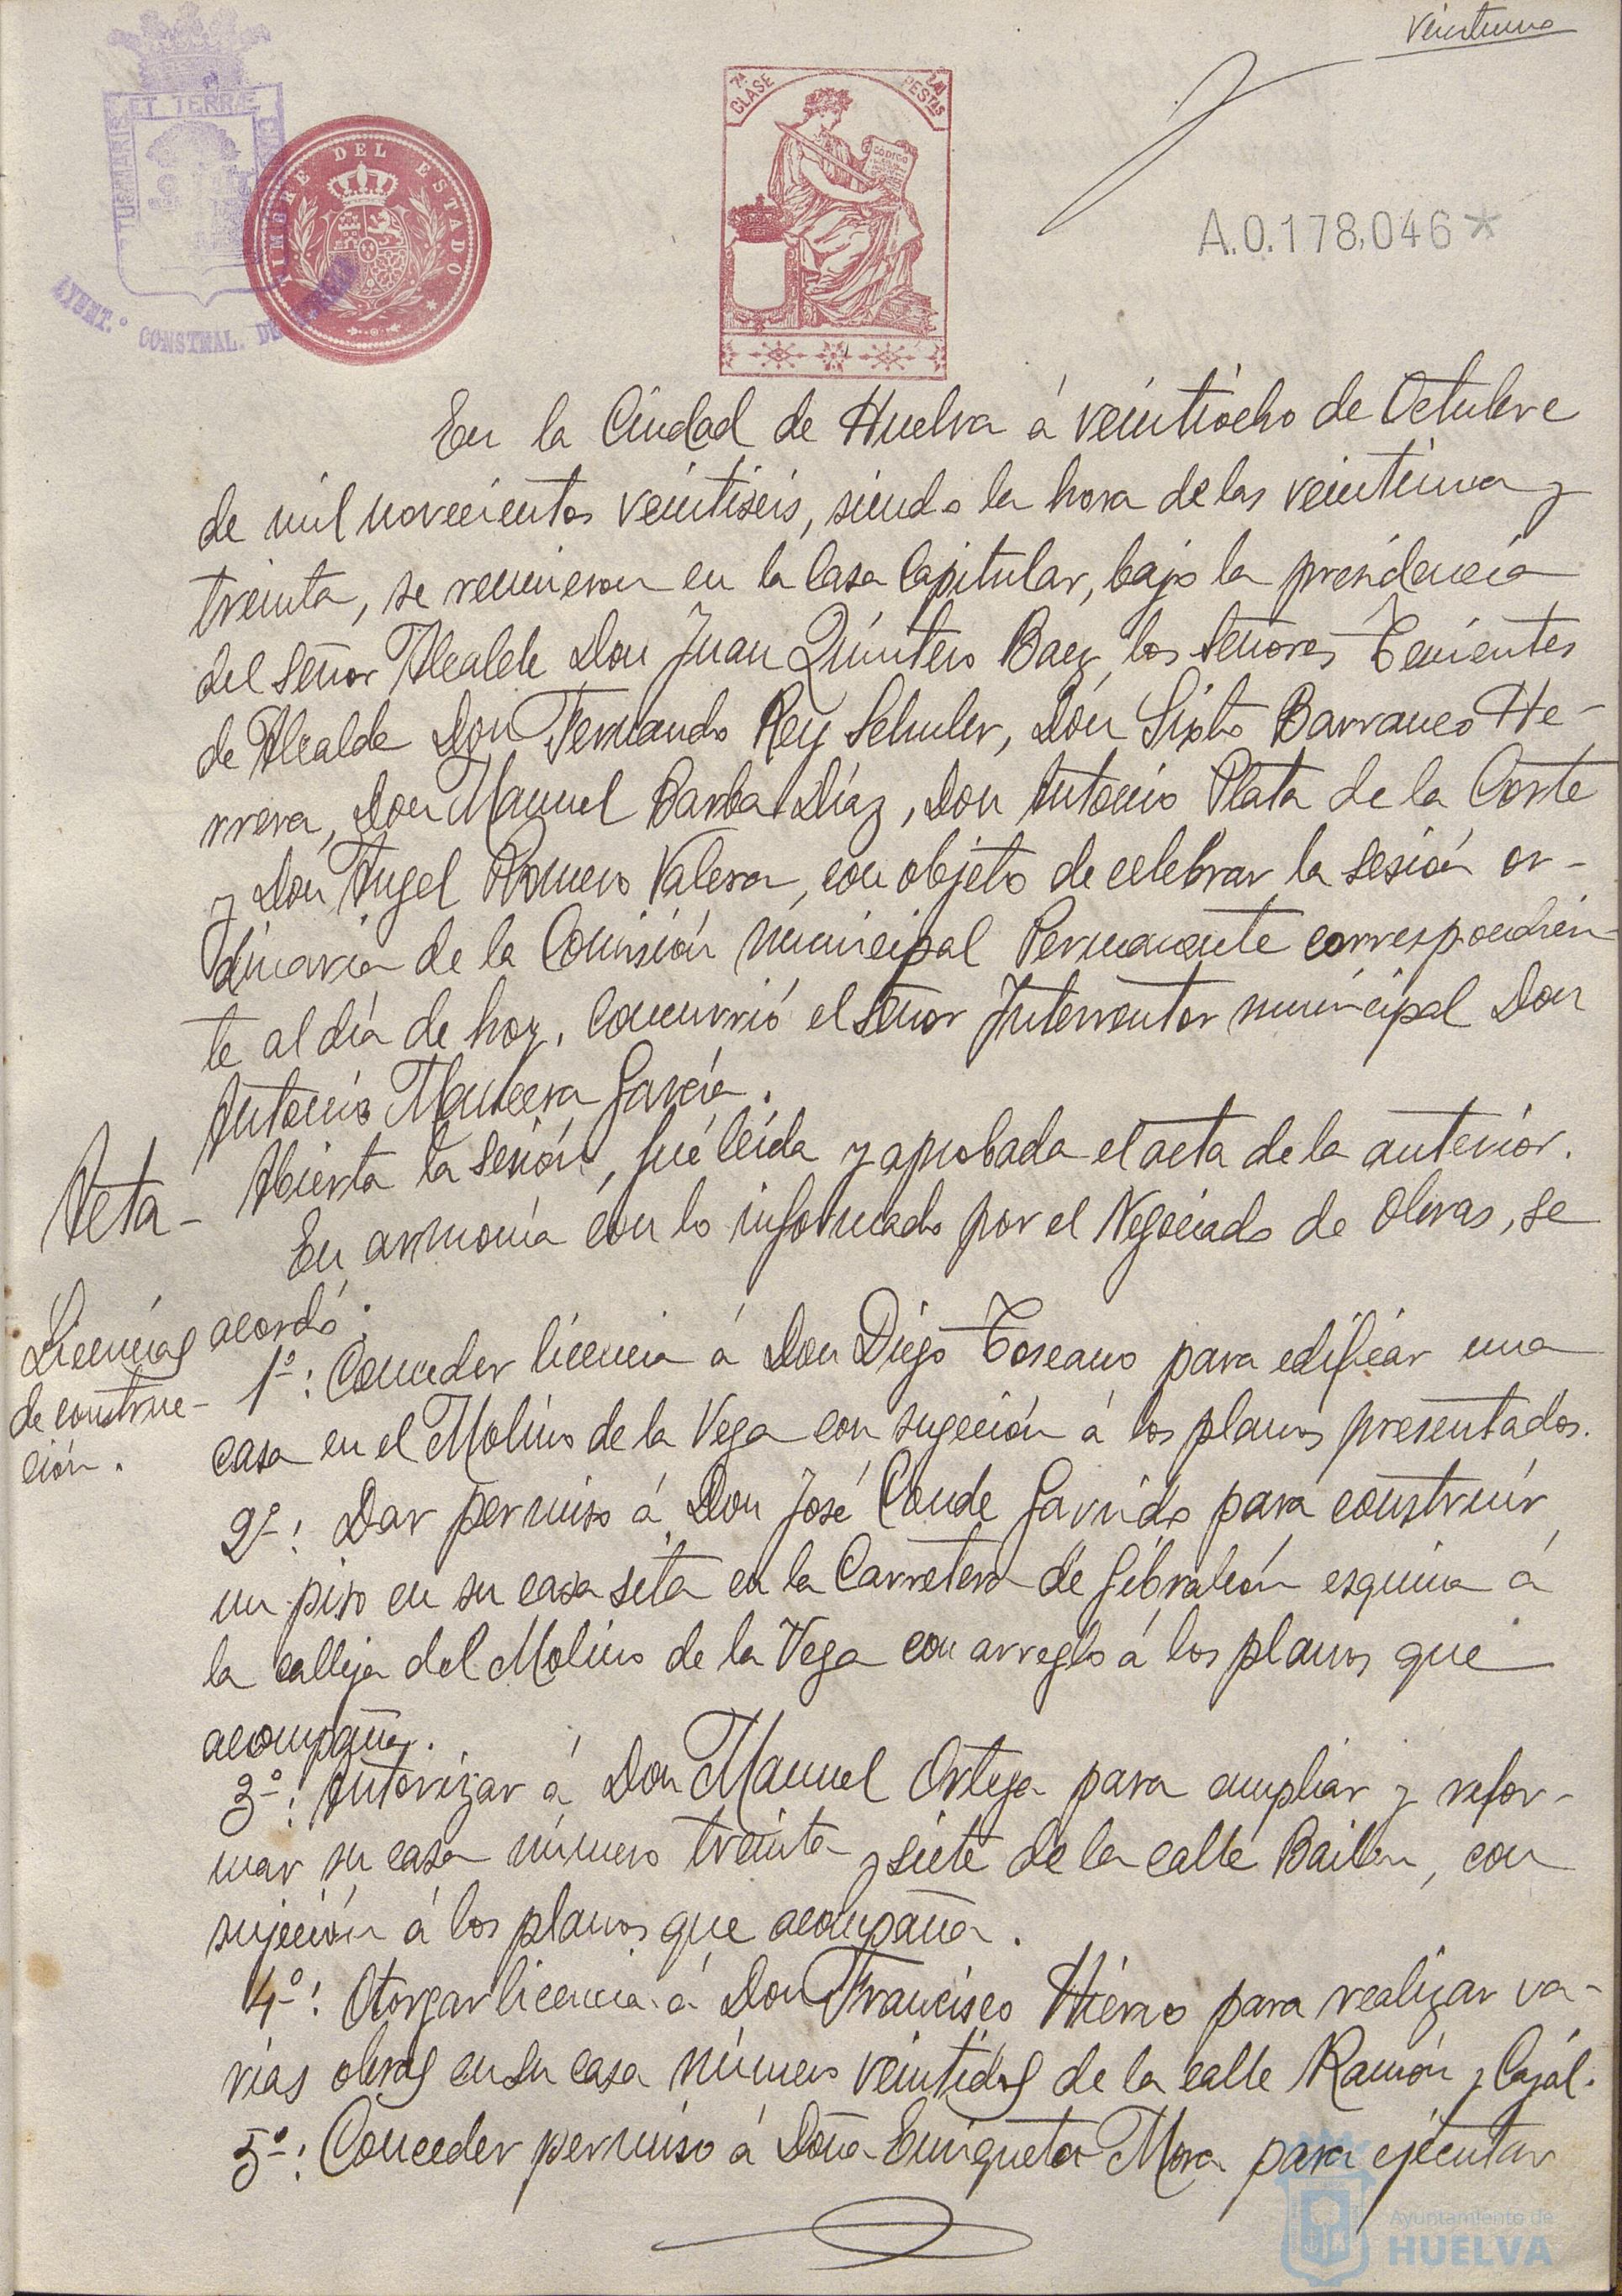 veintiuno
PORTUS MARIS ET TERRÆ CUSTODIA
AYUNT.º CONSTNAL. DE HUELVA
TIMBRE DEL ESTADO
7ª CLASE
PESTAS
CODIGO
A.0.178,046*
En la Ciudad de Huelva á veintiocho de Octubre
de mil novecientos veintiseis, siendo la hora de las veintiuna y
treinta, se reunieron en la Casa Capitular, bajo la presidencia
del Señor Alcalde Don Juan Quintero Baez los Señores Tenientes
de Alcalde Don Fernando Rey Schuler, Don Sixto Barranco He-
rrera, Don Manuel Barba Díaz, Don Antonio Plata de la Corte
y Don Angel Romero Valera, con objeto de celebrar la sesión or-
dinaria de la Comisión municipal Permanente correspondien-
te al día de hoy. Concurrió el Señor Interventor municipal Don
Antonio Mancera García.
Acta - Abierta la Sesión, fué leída y aprobada el acta de la anterior.
En armonía con lo informado por el Negociado de Obras, se
acordó:
Licencias
de construc-
ción.
1º: Conceder licencia á Don Diego Toscano para edificar una
casa en el Molino de la Vega con sugeción á los planos presentados.
2º: Dar permiso á Don José Conde Garrido para construir
un piso en su casa sita en la Carretera de Gibraleón esquina á
la calleja del Molino de la Vega con arreglo á los planos que
acompaña.
3º: Autorizar á Don Manuel Ortega para ampliar y refor-
mar su casa número treinta y siete de la calle Bailen, con
sujeción á los planos que acompaña.
4º: Otorgar licencia á Don Francisco Hierro para realizar va-
rias obras en su casa número veintidos de la calle Ramón y Cajál.
5º: Conceder permiso á Doña Enriqueta Mora para ejecutar
Ayuntamiento de
HUELVA